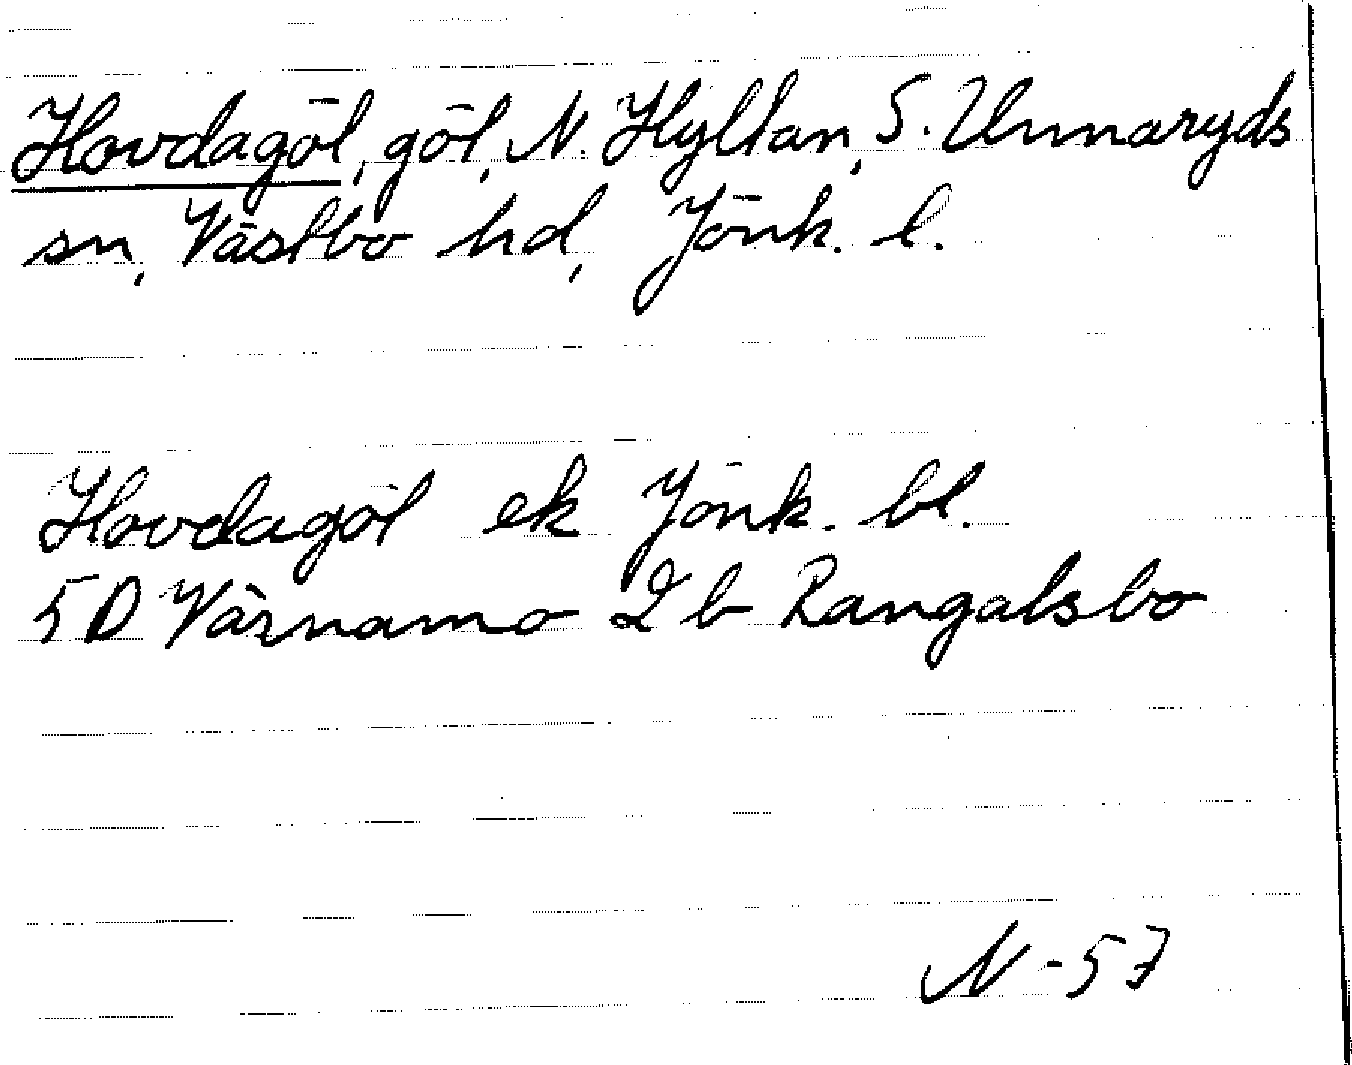 Hovdagöl, göl, N. Hyltan, S. Unnaryds
sn, Västbo hd, Jönk. l.
Hovdagöl ek Jönk. bl.
5D Värnamo 2 b Rangalsbo
N-57